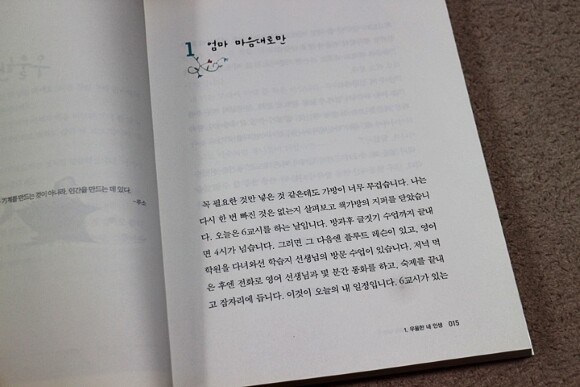 기계를 만드는 것이 아니라, 인간을 만드는 데 있다.
-루소
1 엄마 마음대로만
꼭 필요한 것만 넣은 것 같은데도 가방이 너무 무겁습니다. 나는
다시 한 번 빠진 것은 없는지 살펴보고 책가방의 지퍼를 닫았습니
다. 오늘은 6교시를 하는 날입니다. 방과후 글짓기 수업까지 끝내
면 4시가 넘습니다. 그러면 그 다음엔 플루트 레슨이 있고, 영어
학원을 다녀와선 학습지 선생님의 방문 수업이 있습니다. 저녁 먹
은 후엔 전화로 영어 선생님과 몇 분간 통화를 하고, 숙제를 끝내
고 잠자리에 듭니다. 이것이 오늘의 내 일정입니다. 6교시가 있는
1. 우울한 내 인생 015